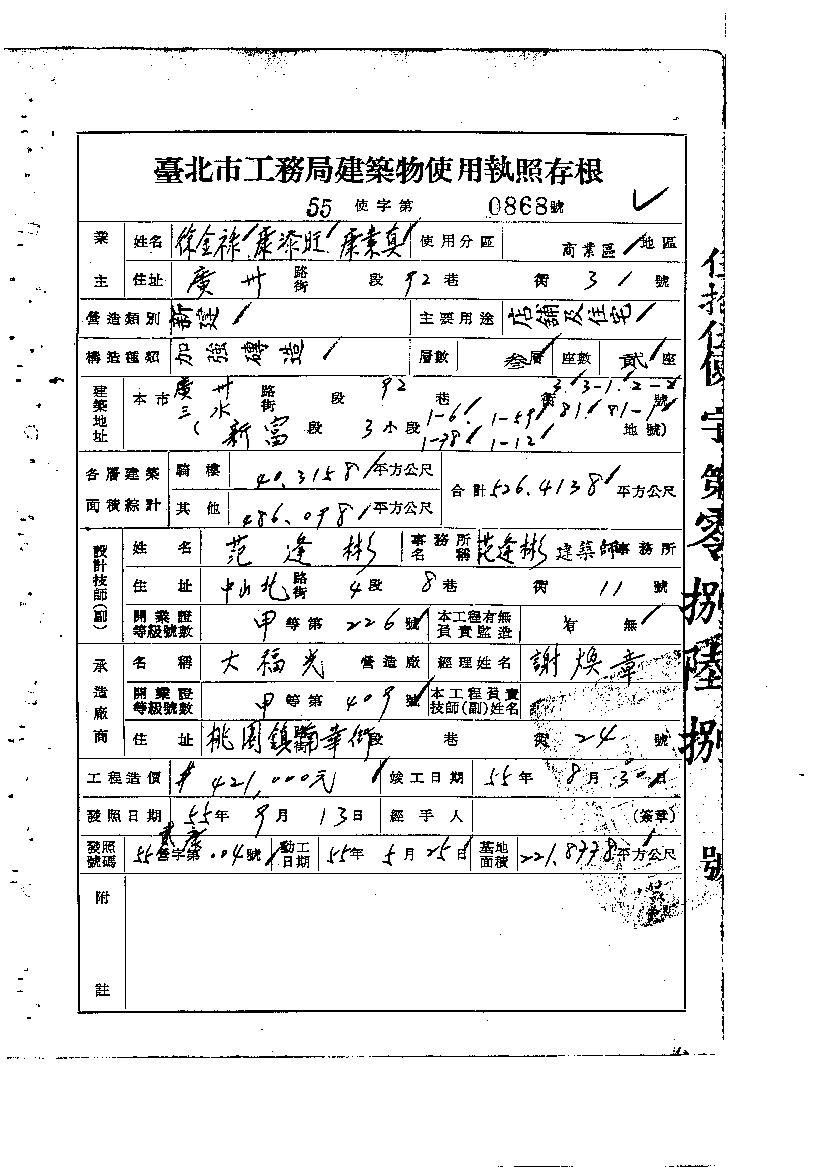 臺北市工務局建築物使用執照存根
55 使字第 0868號
業主 姓名 徐金祿 康添旺 康業真 使用分區 商業區 地區
住址 廣州 路街 段 92 巷 衖 31 號
營造類別 新建 主要用途 店舖及住宅
構造種類 加強磚造 層數 叁層 座數 貳座
建築地址 本市 廣州 路街 段 92 巷 衖 3.3-1.2-2 號
三水
( 新富 段 3 小段 1-6 1-59 81 81-1 地號)
1-38 1-12
各層建築面積綜計 騎樓 40.3158 平方公尺 合計 526.4138 平方公尺
其他 486.098 平方公尺
設計技師(副) 姓名 范逢彬 事務所名稱 范逢彬建築師事務所
住址 中山北 路街 4段 8巷 衖 11 號
開業證等級號數 甲等第 226 號 本工程有無負責監造 有 無
承造廠商 名稱 大福光 營造廠 經理姓名 謝煥章
開業證等級號數 甲等第 409 號 本工程負責技師(副)姓名
住址 桃園鎮 段 巷 衖 24 號
工程造價 421,000元 竣工日期 55年 8月 30日
發照日期 55年 9月 13日 經手人 (簽章)
發照號碼 55營字第 004號 動工日期 55年 5月 25日 基地面積 221.8778平方公尺
附註
伍拾伍使字第零捌陸捌號